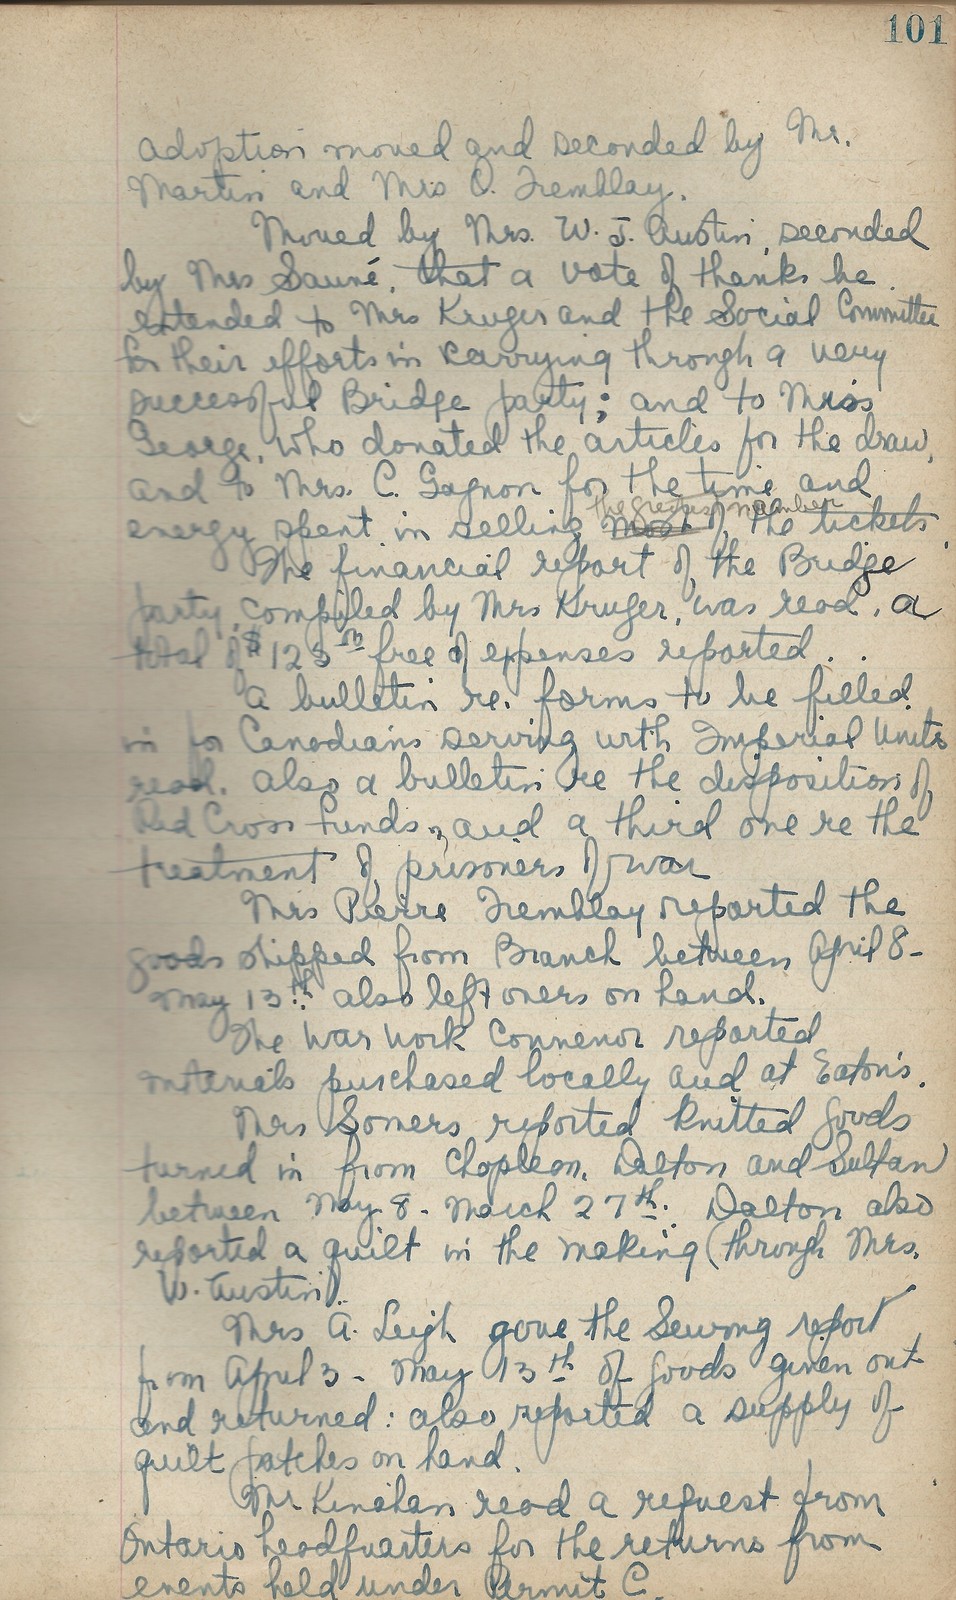 101
adoption moved and seconded by Mr.
Martin and Mrs O. Tremblay.
Moved by Mrs. W. J. Austin, seconded
by Mrs Sauné, that a vote of thanks be
extended to Mrs Kruger and the Social Committee
for their efforts in carrying through a very
successful Bridge party; and to Miss
George, who donated the articles for the draw,
and to Mrs. C. Gagnon for the time and
the greatest number
energy spent in selling most of the tickets.
The financial report of the Bridge
party, compiled by Mrs Kruger, was read, a
total of $ free of expenses reported.
A bulletin re. forms to be filled
in for Canadians serving with Imperial Units
read. Also a bulletin re the disposition of
Red Cross funds, and a third one re the
treatment of prisoners of war
Mrs Pierre Tremblay reported the
goods shipped from Branch between April 8-
May 13th also left overs on hand.
The War Work Convenor reported
materials purchased locally and at Eaton's.
Mrs Somers reported knitted goods
turned in from Chapleau, Dalton and Sultan
between May 8 - March 27th. Dalton also
reported a quilt in the making (through Mrs.
W. Austin).
Mrs A. Leigh gave the Sewing report
from April 3 - May 13th of goods given out
and returned: also reported a supply of
quilt patches on hand.
Mr Kinahan read a request from
Ontario headquarters for the returns from
events held under Permit C.